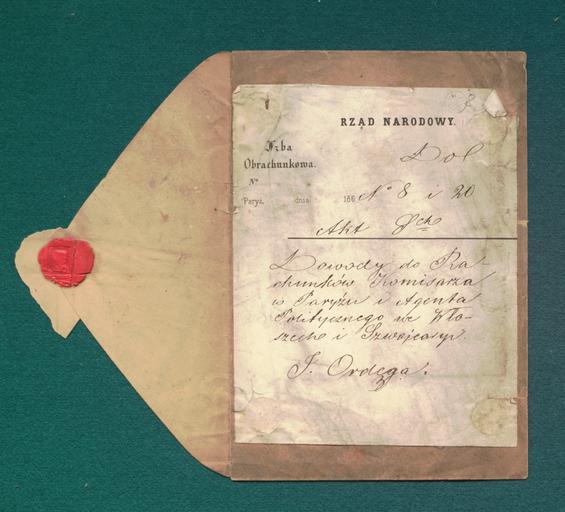 RZĄD NARODOWY.
Izba
Obrachunkowa.
Dol
Nº
Paryż, dnia 186
Nº 8 i 20
Akt
Dowody do Ra-
chunków Komisarza
w Paryżu i Agenta
Politycznego we Wło-
szech i Szwajcaryi
J. Ordęga.